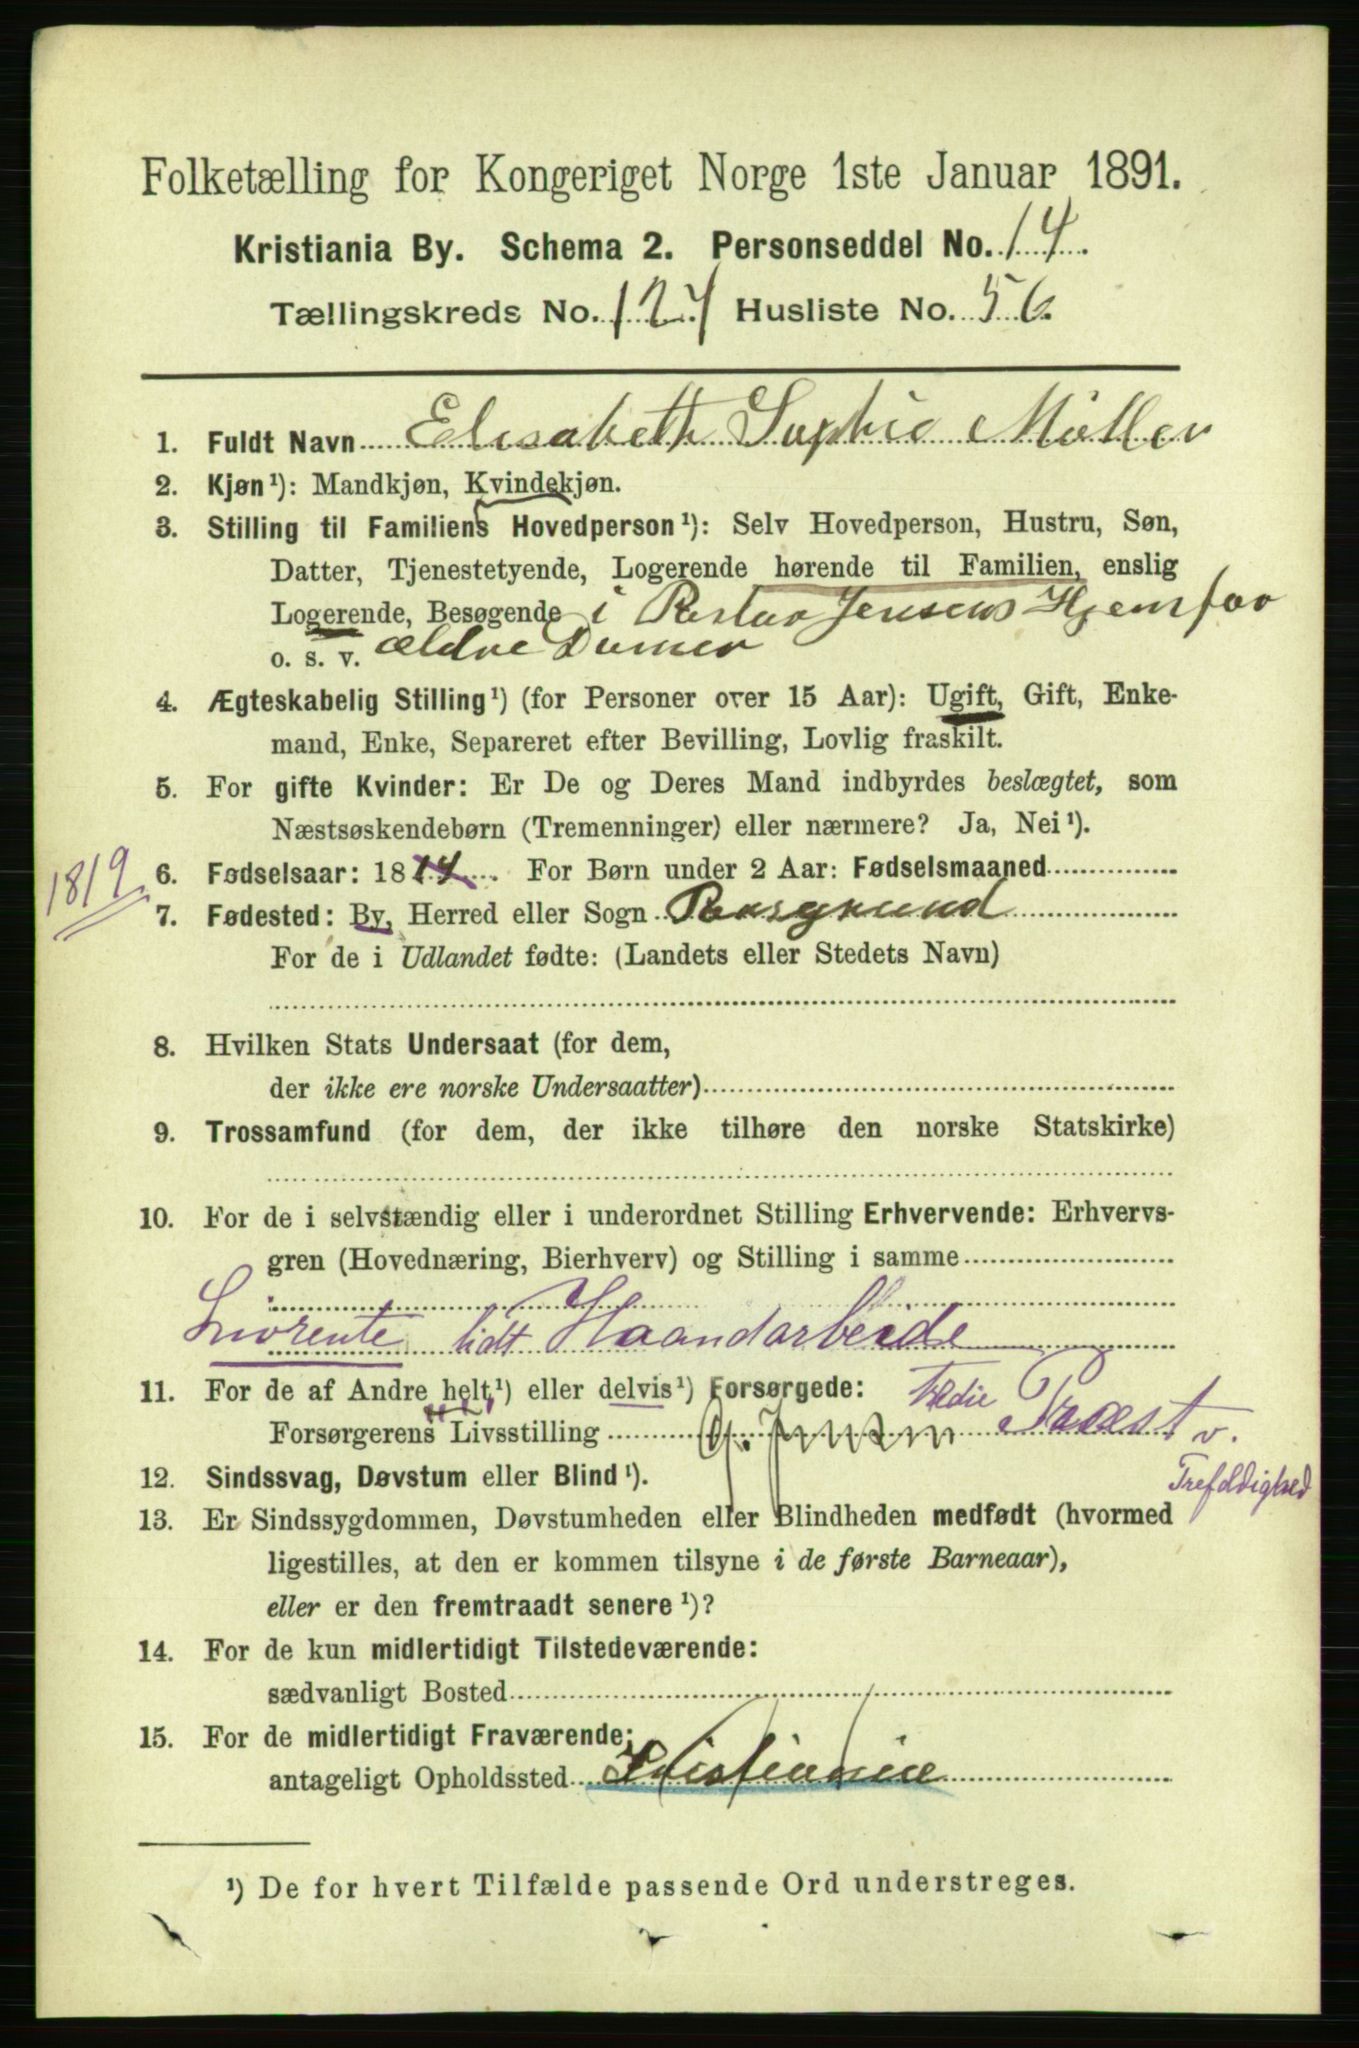 Folketælling for Kongeriget Norge 1ste Januar 1891.
Kristiania By. Schema 2. Personseddel No. 14.
Tællingskreds No. 124 Husliste No. 56.
1. Fuldt Navn Elisabeth Sophie Müller
2. Kjøn¹): Mandkjøn, Kvindekjøn.
3. Stilling til Familiens Hovedperson¹): Selv Hovedperson, Hustru, Søn,
Datter, Tjenestetyende, Logerende hørende til Familien, enslig
Logerende, Besøgende i Pastor Jensens Hjem for
o. s. v. ældre Damer
4. Ægteskabelig Stilling¹) (for Personer over 15 Aar): Ugift, Gift, Enke-
mand, Enke, Separeret efter Bevilling, Lovlig fraskilt.
5. For gifte Kvinder: Er De og Deres Mand indbyrdes beslægtet, som
Næstsøskendebørn (Tremenninger) eller nærmere? Ja, Nei¹).
1819
6. Fødselsaar: 1814. For Børn under 2 Aar: Fødselsmaaned
7. Fødested: By, Herred eller Sogn Porsgrund
For de i Udlandet fødte: (Landets eller Stedets Navn)
8. Hvilken Stats Undersaat (for dem,
der ikke ere norske Undersaatter)
9. Trossamfund (for dem, der ikke tilhøre den norske Statskirke)
10. For de i selvstændig eller i underordnet Stilling Erhvervende: Erhvervs-
gren (Hovednæring, Bierhverv) og Stilling i samme
Livrente lidt Haandarbeide
11. For de af Andre helt¹) eller delvis¹) Forsørgede:
Forsørgerens Livsstilling Jensen Præst v.
Trefoldighed
12. Sindssvag, Døvstum eller Blind¹).
13. Er Sindssygdommen, Døvstumheden eller Blindheden medfødt (hvormed
ligestilles, at den er kommen tilsyne i de første Barneaar),
eller er den fremtraadt senere¹)?
14. For de kun midlertidigt Tilstedeværende:
sædvanligt Bosted
15. For de midlertidigt Fraværende:
antageligt Opholdssted Kristiania
¹) De for hvert Tilfælde passende Ord understreges.